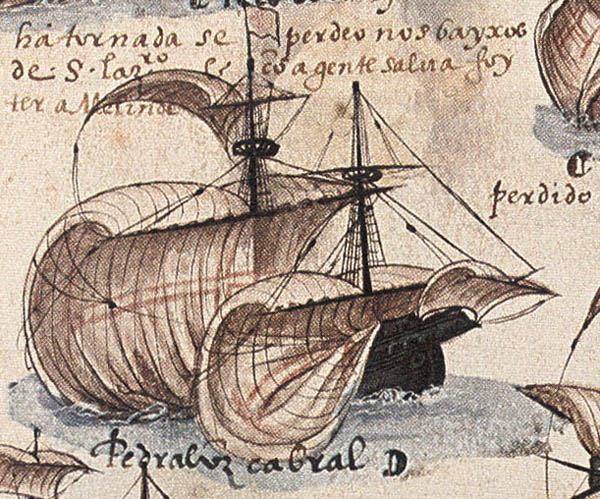 há tornada se perdeo nos bayxos
de S. Lazro e cõ a gente salva foy
ter a Melinde
C
perdido
Pedralvrz cabral D